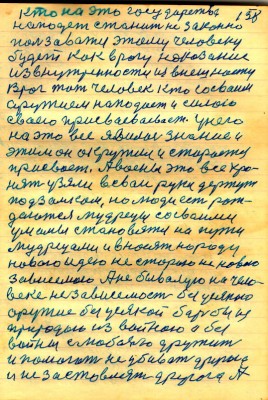 158
Кто на это государства
нападет станит не законно
ползавати этому человеку
будет как врагу наказание
из внутренности из внешности
Враг тот человек кто со своим
оружием нападает и силою
своего присваевавает. У него
на это все явилась знание и
этим он окружил и старается
присвоет. А воены это все хра-
нят узяли в свои руки держут
под замком, но люди ест рож-
даются мудрецы со своими
умами становятя на пути
мудрецами и вносят народу
новою идею не старою не новою
зависемого А не бывалую на чело-
веке независемост без усякого
оружие без усякой барбы из
природою из войною а без
войны с любовю дружит
и помогат не убиват другова
и не заставлят другова А